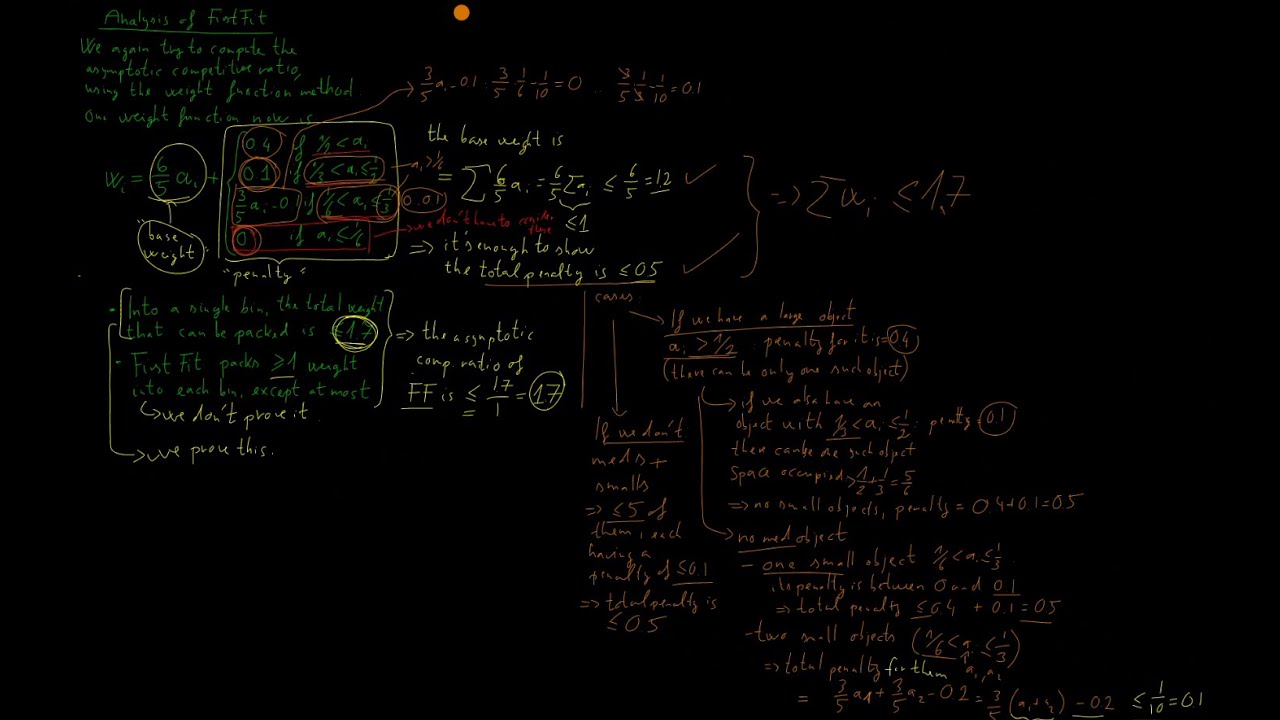 Analysis of FirstFit
We again try to compute the
asymptotic competitive ratio,
using the weight function method.
Our weight function now is
w_i = 6/5 a_i +
0.4 if 1/2 < a_i
0.1 if 1/3 < a_i ≤ 1/2
3/5 a_i - 0.1 if 1/6 < a_i ≤ 1/3
0 if a_i ≤ 1/6
"base
weight"
"penalty"
3/5 a_i - 0.1 : 3/5 · 1/6 - 1/10 = 0 ... 3/5 · 1/3 - 1/10 = 0.1
a_i > 1/6
0.01
we don't have to
the base weight is
= Σ 6/5 a_i = 6/5 Σ a_i ≤ 6/5 = 1.2
≤ 1
=> it's enough to show
the total penalty is ≤ 0.5
=> Σ w_i ≤ 1.7
- Into a single bin, the total weight
that can be packed is ≤ 1.7
- First Fit packs ≥ 1 weight
into each bin, except at most
we don't prove it
we prove this.
=> the asymptotic
comp. ratio of
FF is ≤ 1.7/1 = 1.7
cases:
If we don't
meds +
smalls
=> ≤ 5 of
them, each
having a
penalty of ≤ 0.1
=> total penalty is
≤ 0.5
If we have a large object
a_i > 1/2 : penalty for it is = 0.4
(there can be only one such object)
if we also have an
object with 1/3 < a_i ≤ 1/2 : penalty = 0.1
there can be one such object
space occupied > 1/2 + 1/3 = 5/6
=> no small objects, penalty = 0.4 + 0.1 = 0.5
no med object
- one small object 1/6 < a_i ≤ 1/3
its penalty is between 0 and 0.1
=> total penalty ≤ 0.4 + 0.1 = 0.5
- two small objects (1/6 < a_i ≤ 1/3)
a_1, a_2
=> total penalty for them
= 3/5 a_1 + 3/5 a_2 - 0.2 = 3/5 (a_1 + a_2) - 0.2 ≤ 1/10 = 0.1